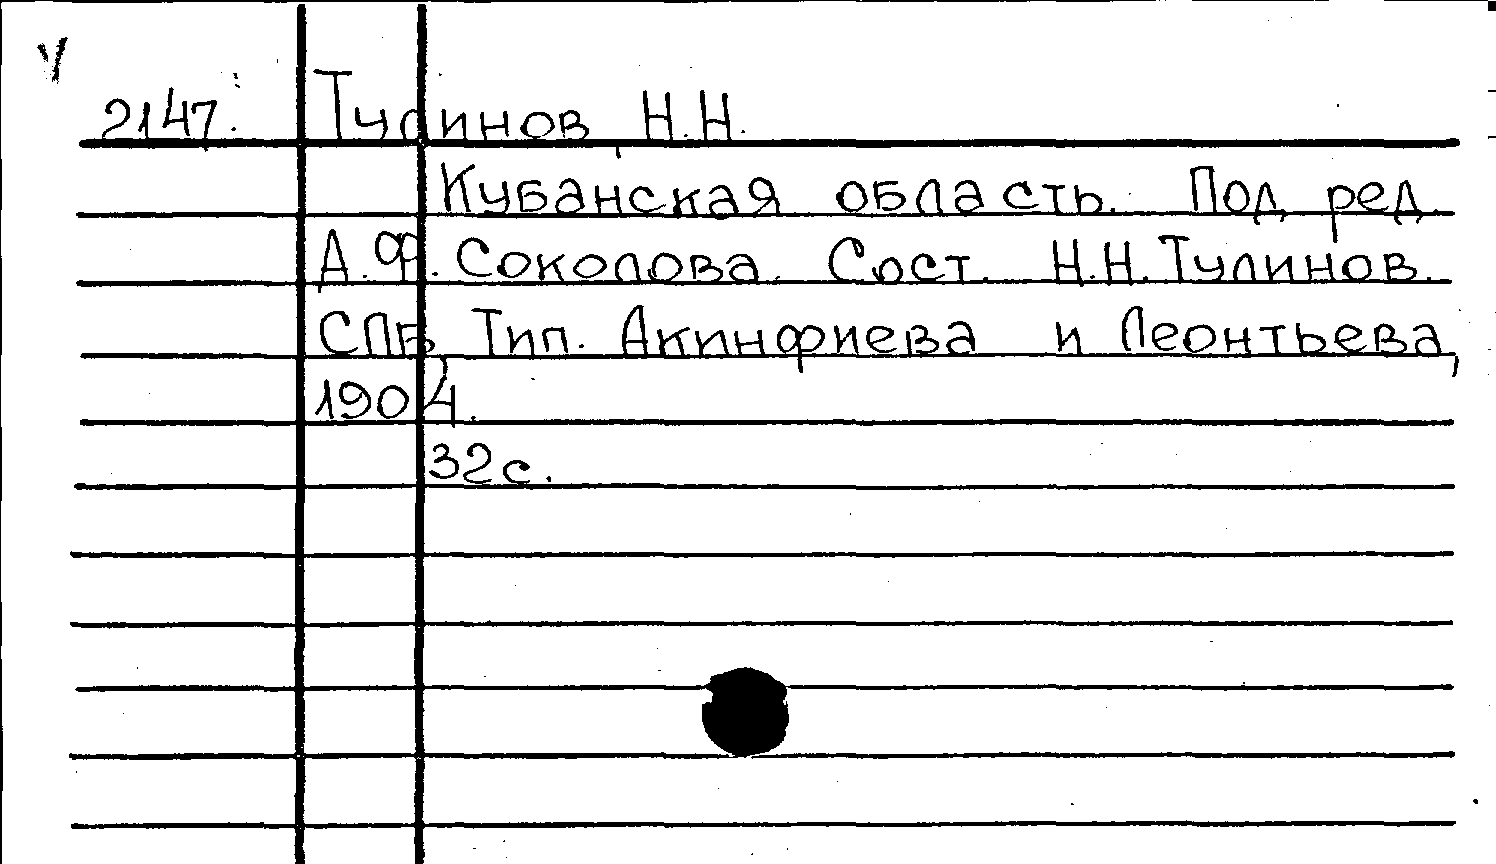 У
2147. Тулинов, Н.Н.
Кубанская область. Под ред.
А.Ф. Соколова. Сост. Н.Н. Тулинов.
СПБ, Тип. Акинфиева и Леонтьева,
1904.
32с.